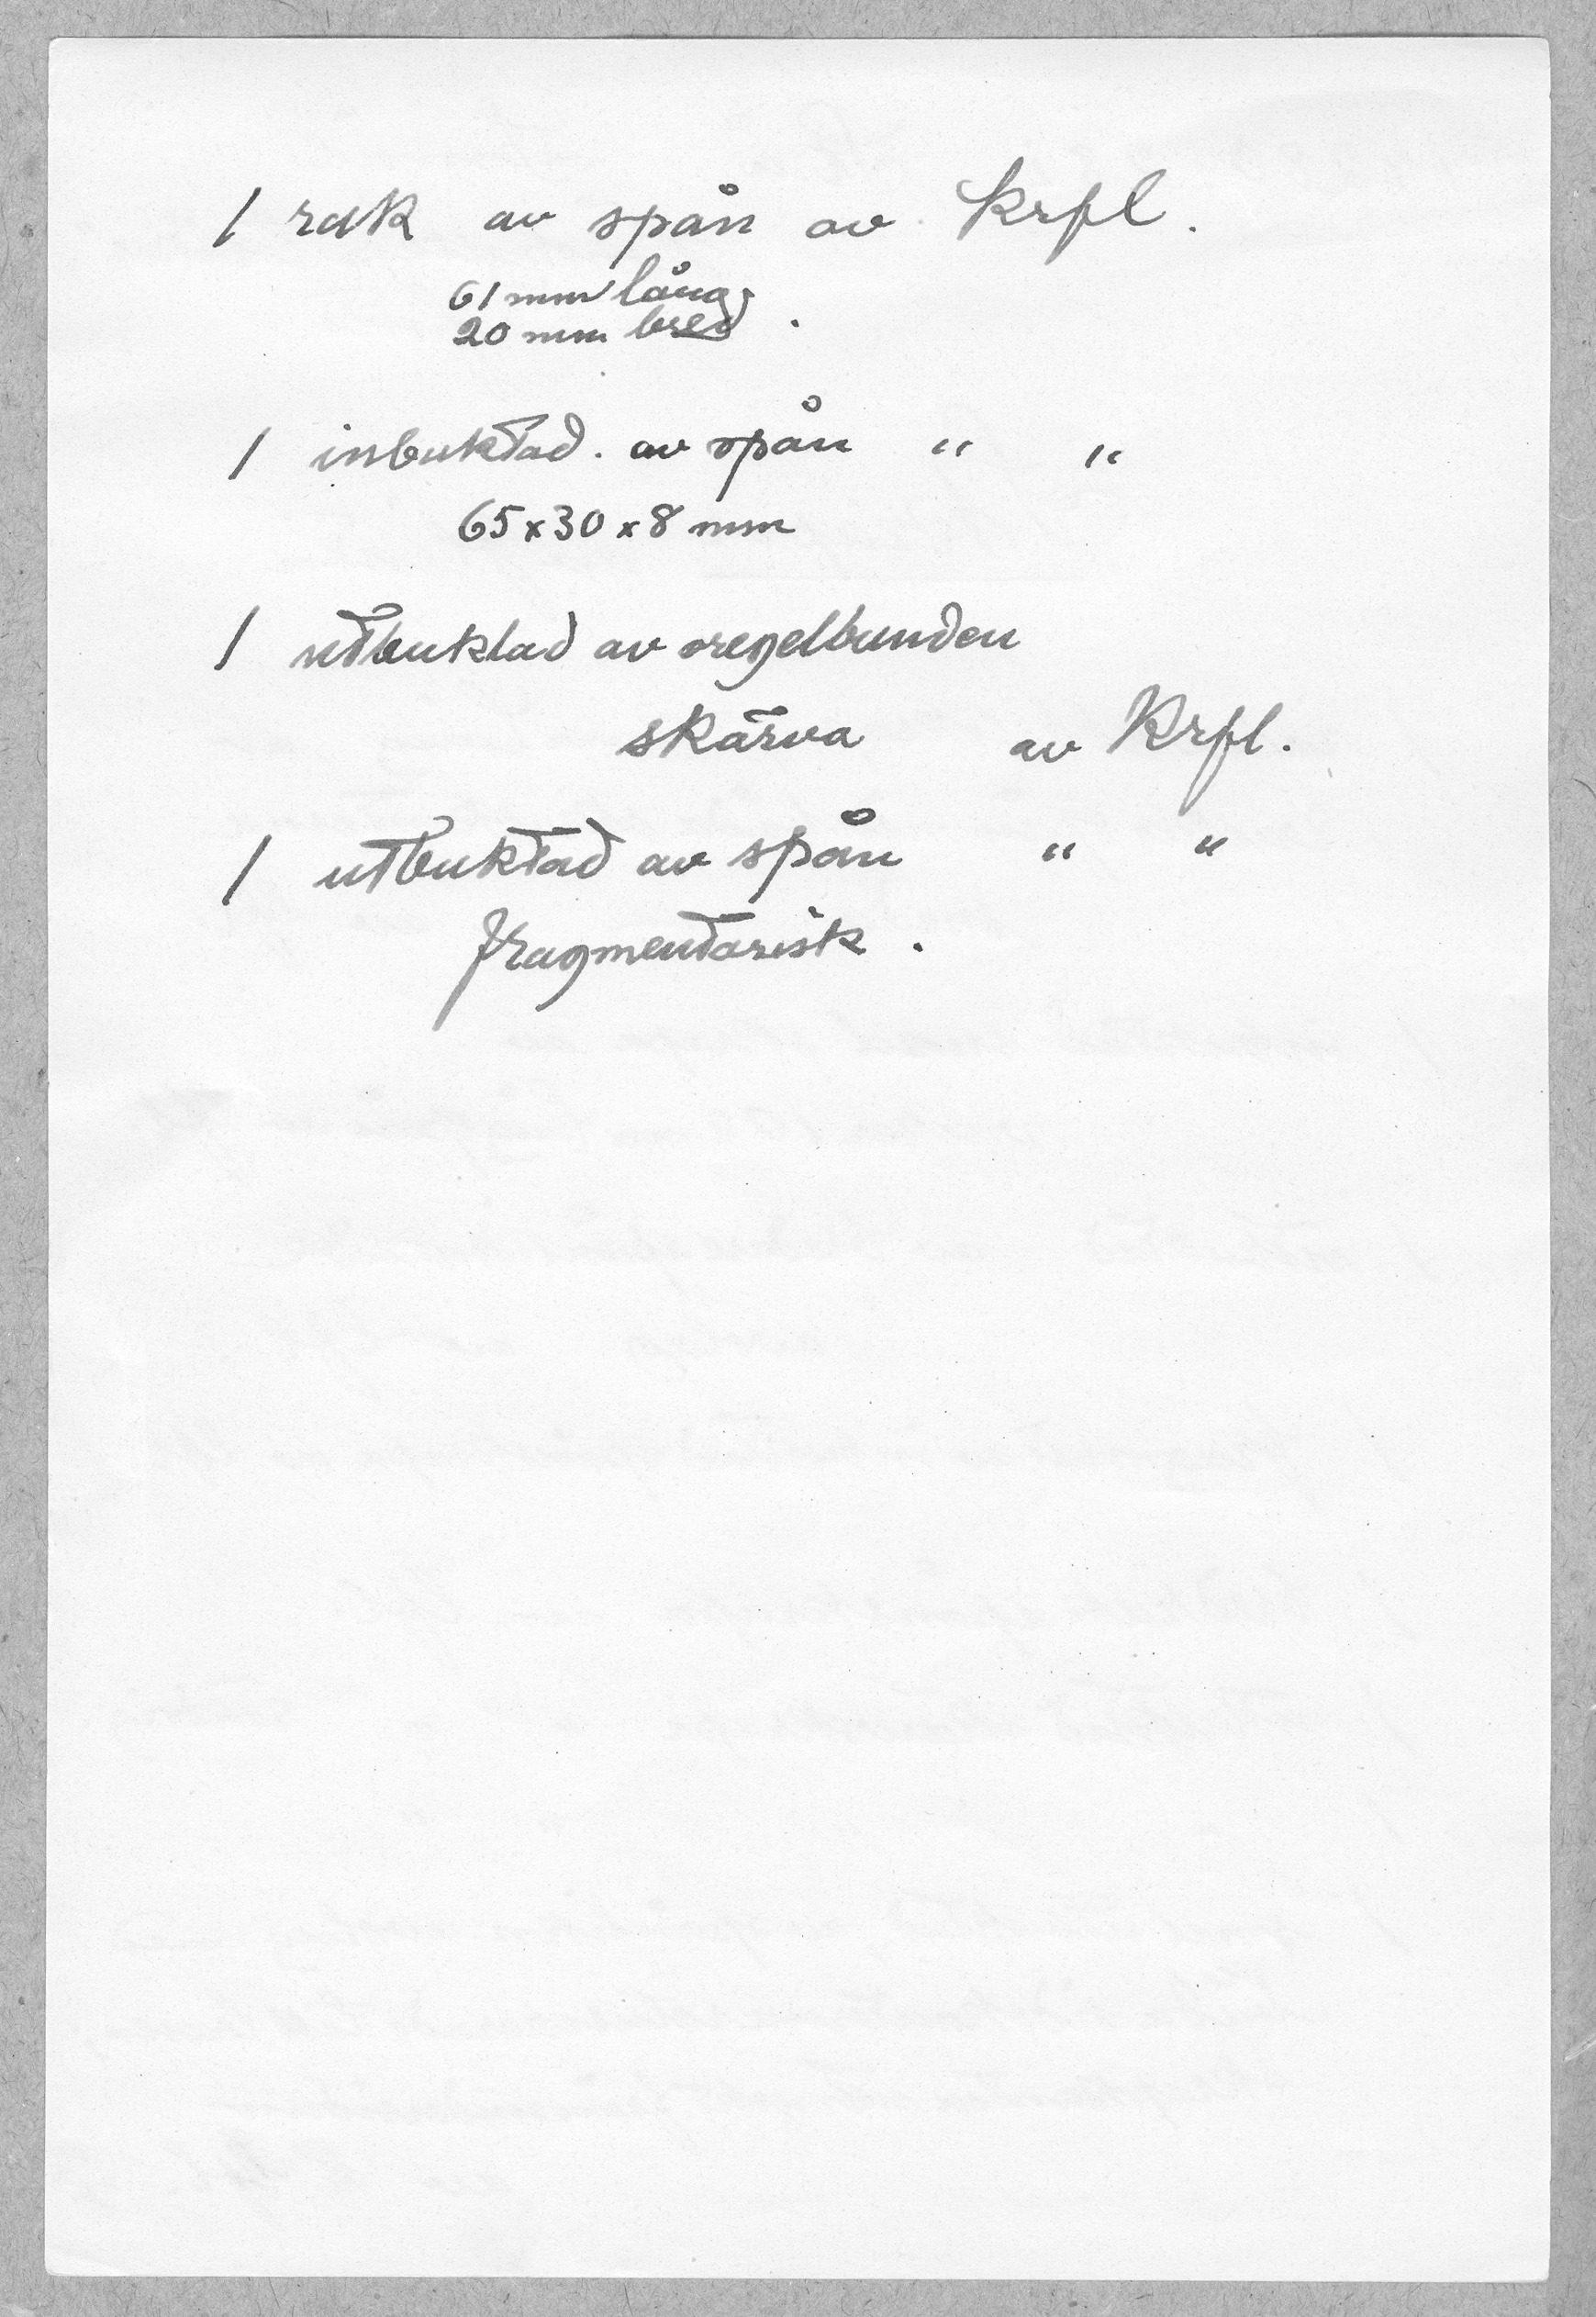 1 rak av spån av Krfl.
61 mm lång
20 mm bred.
1 inbuktad. av spån " "
65 x 30 x 8 mm
1 utbuktad av oregelbunden
skärva av Krfl.
1 utbuktad av spån " "
fragmentarisk.